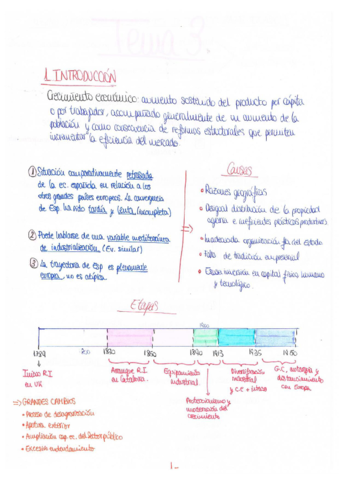 Tema 3.
1. INTRODUCCIÓN
Crecimiento económico: aumento sostenido del producto por cápita
o por trabajador, acompañado generalmente de un aumento de la
población y como consecuencia de reformas estructurales que permiten
incrementar la eficiencia del mercado.
① Situación comparativamente retrasada
de la ec. española en relación a los
otros grandes países europeos. La convergencia
de Esp ha sido tardía y lenta (incompleta)
② Puede hablarse de una variable mediterránea
de industrialización (Ev. similar)
③ La trayectoria de Esp es plenamente
europea, no es atípica.
Causas
• Razones geográficas
• Desigual distribución de la propiedad
agraria e ineficientes prácticas productivas
• Inadecuada organización fis. del estado
• Falta de tradición empresarial
• Escasa inversión en capital físico, humano
y tecnológico
Etapas
1820
1860
1890
1913
1935
1950
Inicio R.I.
en UK
Arranque R.I.
en Cataluña.
Equipamiento
industrial
Proteccionismo y
moderación del
crecimiento
Diversificación
industrial
G.C., autarquía y
distanciamiento
con Europa
⇒ GRANDES CAMBIOS
• Proceso de desagrarización
• Apertura exterior
• Ampliación esp. ec. del sector público
• Excesivo endeudamiento
1